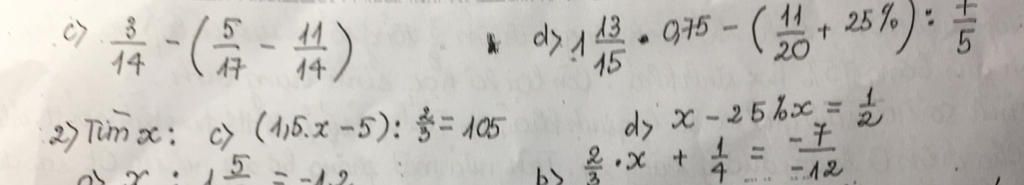 c) 3/14 - (5/17 - 11/14) d) 1 13/15 . 0,75 - (11/20 + 25%) : 7/5
2) Tìm x: c) (1,5.x - 5) : 2/3 = 105 d) x - 25%x = 1/2
a) x : 1 5 = -1,2 b) 2/3 . x + 1/4 = -7/-12